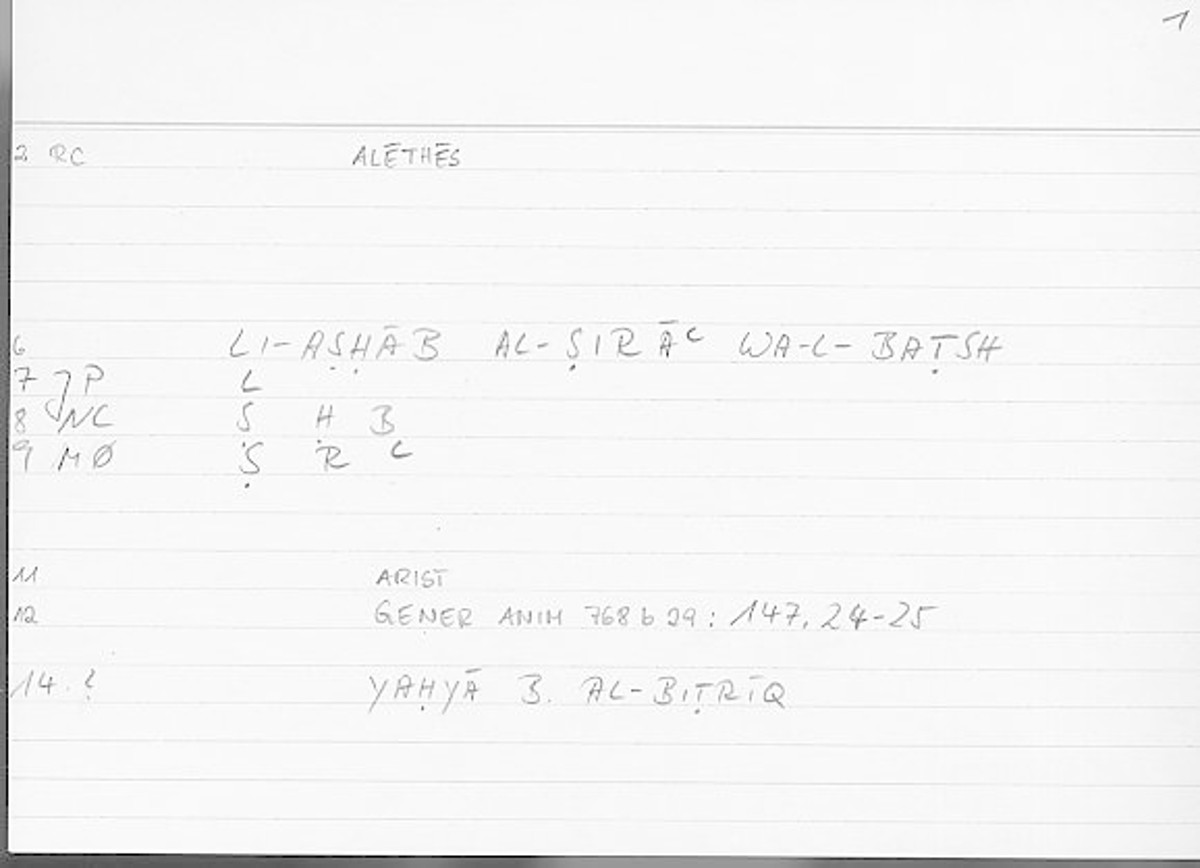 1
2 RC ALĒTHĒS
6 LI-AṢḤĀB AL-ṢIRĀʿ WA-L-BAṬSH
7 JP L
8 NC Ṣ Ḥ B
9 MØ Ṣ R ʿ
11 ARIST
12 GENER ANIM 768 b 29: 147, 24-25
14 ? YAḤYĀ B. AL-BIṬRĪQ